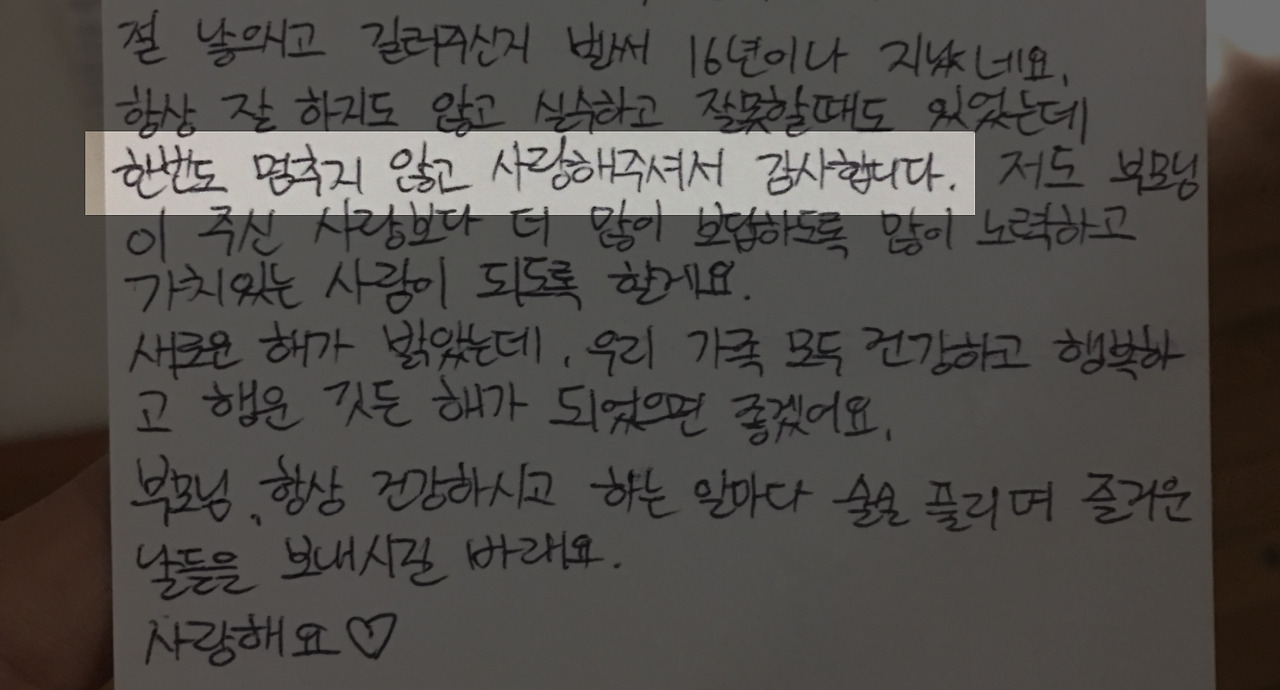 절 낳으시고 길러주신지 벌써 16년이나 지났네요.
항상 잘 하지도 않고 실수하고 잘못할때도 있었는데
한번도 멈추지 않고 사랑해주셔서 감사합니다. 저도 부모님
이 주신 사랑보다 더 많이 보답하도록 많이 노력하고
가치있는 사람이 되도록 할게요.
새로운 해가 밝았는데, 우리 가족 모두 건강하고 행복하
고 행운 깃든 해가 되었으면 좋겠어요.
부모님, 항상 건강하시고 하는 일마다 술술 풀리며 즐거운
날들을 보내시길 바래요.
사랑해요♡